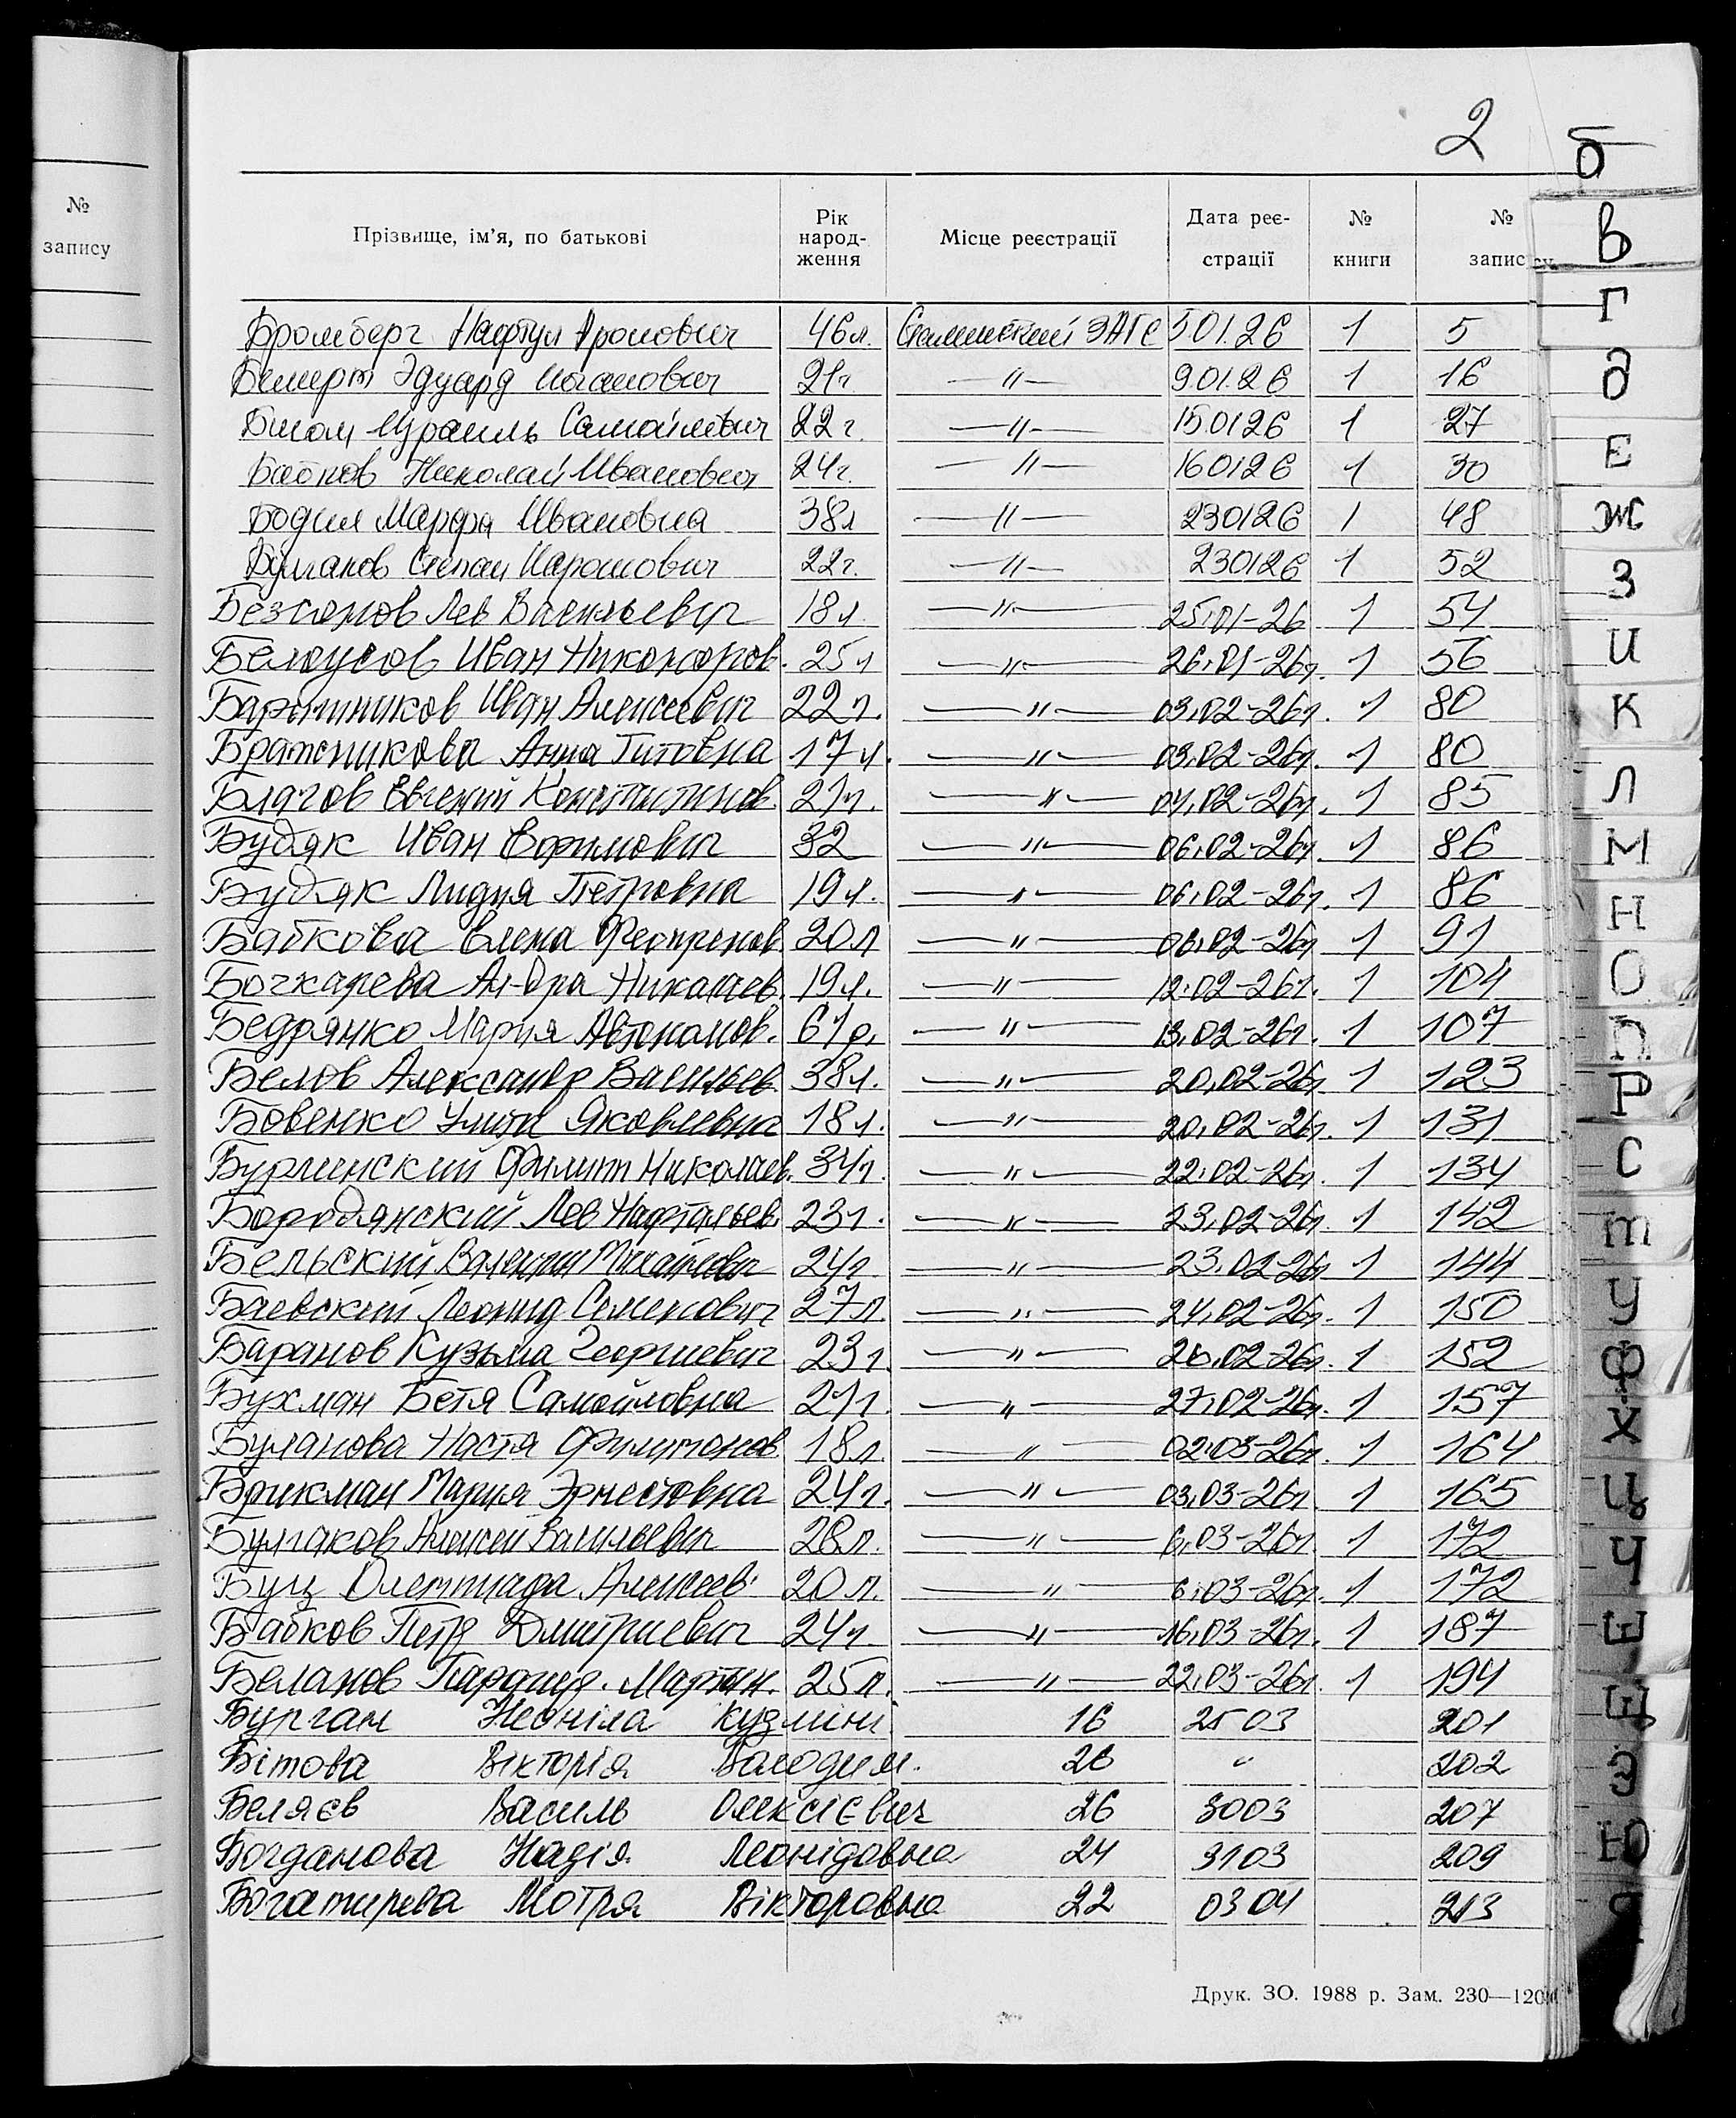 2
№
запису
Прізвище, ім'я, по батькові | Рік народ-ження | Місце реєстрації | Дата реє-страції | № книги | № запису
Бромберг Нафтул Аронович 46л. Сталинский ЗАГС 5.01.26 1 5
Эдуард Иоганович 21г. —"— 9.01.26 1 16
Блюм Израиль Самойлович 22г. —"— 150126 1 27
Бабков Николай Иванович 24г. —"— 160126 1 30
Марфа Ивановна 38л —"— 230126 1 48
Булгаков Степан 22г. —"— 230126 1 52
Безсонов Лев Васильевич 18л. —"— 25,01-26 1 54
Белоусов Иван Никоноров. 25л —"— 26,01-26г. 1 56
Иван Алексеевич 22г. —"— 03,02-26г. 1 80
Анна Титовна 17л. —"— 03,02-26г. 1 80
Благов Евгений Константинов. 21г. —"— 04,02-26г. 1 85
Будяк Иван Ефимович 32 —"— 06,02-26г. 1 86
Будяк Лидия Петровна 19л. —"— 06,02-26г. 1 86
Бабкова Елена 20л —"— 08,02-26г 1 91
Бочкарева Ал-дра Николаев. 19л. —"— 12.02-26г. 1 104
Бедрянко Мария Автономов. 61р. —"— 13,02-26г. 1 107
Белов Александр Васильев. 38л. —"— 20,02-26г 1 123
Бовенко Улита Яковлевна 18л. —"— 20,02-26г. 1 131
Филипп Николаев. 34г. —"— 22.02-26г. 1 134
Бородянский Лев Нафтальев. 23г. —"— 23,02-26г. 1 142
Бельский Валентин Михайлович 24г. —"— 23,02-26г 1 144
Баевский Леонид Семенович 27л. —"— 24,02-26г. 1 150
Баранов Кузьма Георгиевич 23г. —"— 26,02-26г. 1 152
Бухман Бетя Самойловна 21г. —"— 27,02-26г. 1 157
Буланова Настя Филимонов. 18л. —"— 02.03-26г. 1 164
Брикман Мария Эрнестовна 24г. —"— 03,03-26г. 1 165
Булгаков Алексей Васильевич 28л. —"— 6,03-26г. 1 172
Буц Олемпиада Алексеев. 20л. —"— 6,03-26г. 1 172
Бабков Петр Дмитриевич 24г. —"— 16,03-26г. 1 187
Беланов Мартын. 25л. —"— 22,03-26г. 1 194
Бурган Неоніла Кузмині 16 2503 201
Бітова Вікторія Володим. 26 " 202
Беляєв Василь Олексієвич 26 3003 207
Богданова Надія Леонідовна 24 3103 209
Богатирева Мотря Вікторовна 22 0304 213
Друк. ЗО. 1988 р. Зам. 230—120
б
В
Г
д
Е
Ж
З
И
К
Л
М
Н
О
П
Р
С
т
У
Ф
Х
Ц
Ч
Ш
Щ
Э
Ю
Я